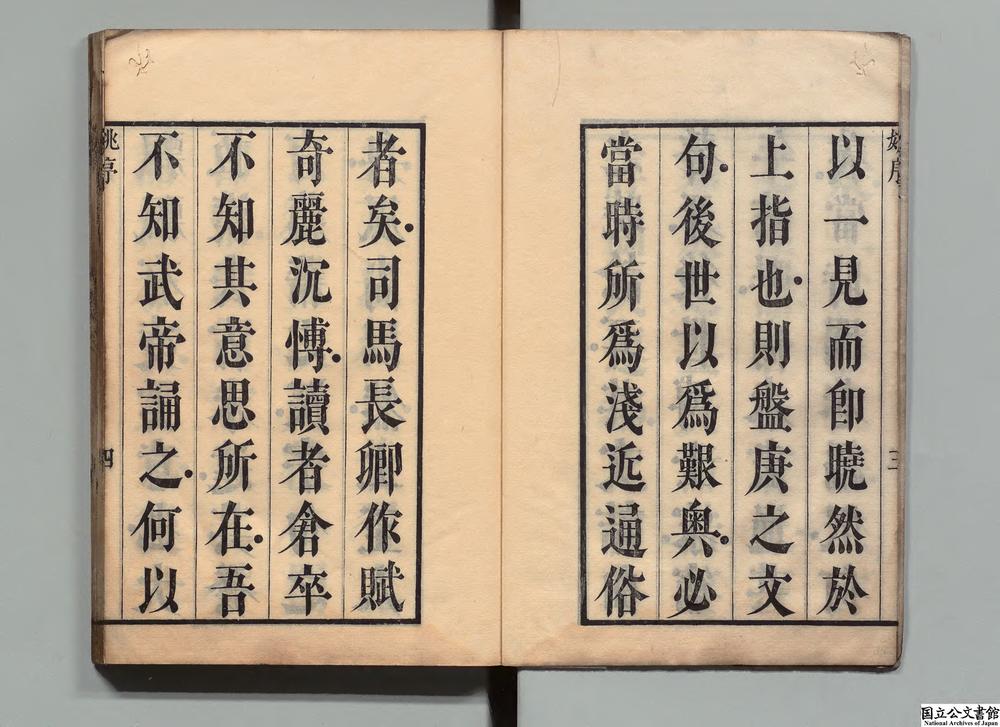 以一見而卽曉然於
上指也。則盤庚之文
句。後世以爲艱奧。必
當時所爲淺近通俗
三
者矣。司馬長卿作賦
奇麗沉愽。讀者倉卒
不知其意思所在。吾
不知武帝誦之。何以
四
国立公文書館
National Archives of Japan